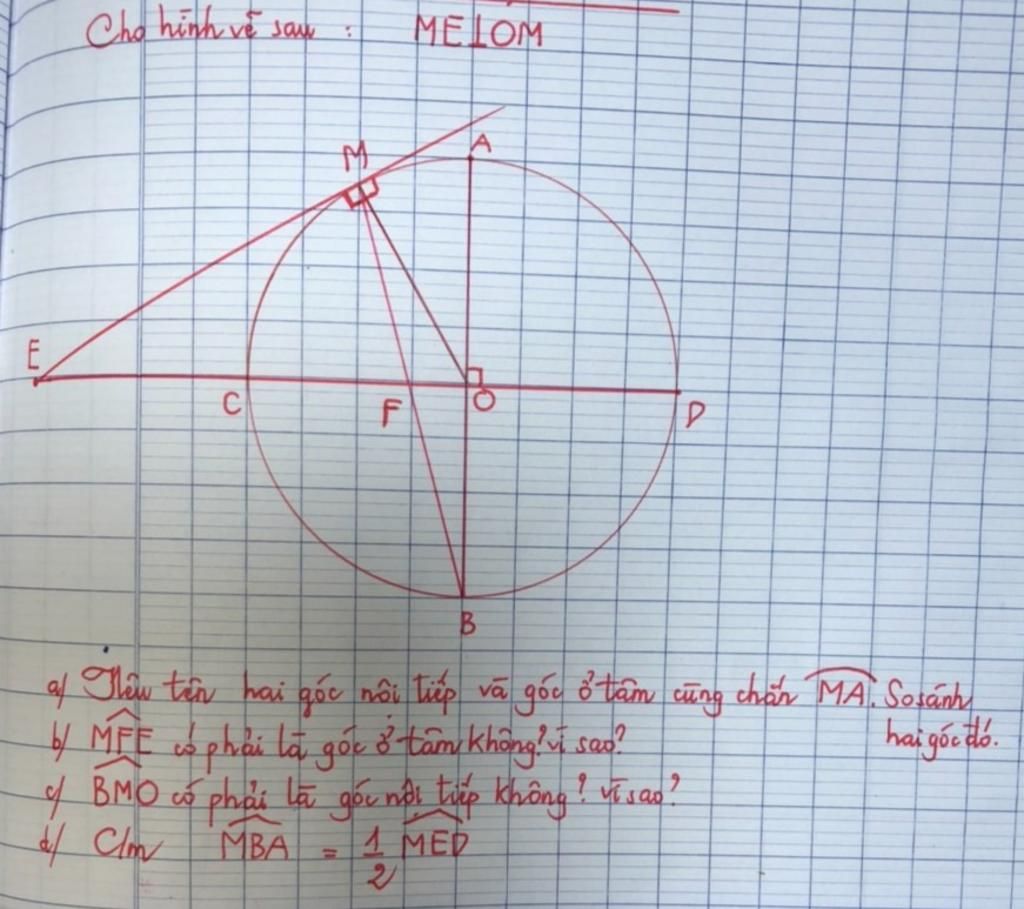 Cho hình vẽ sau : ME⊥OM
M
A
E
C
F
O
D
B
a/ Nêu tên hai góc nội tiếp và góc ở tâm cùng chắn \overset{\frown}{MA}. So sánh
hai góc đó.
b/ \widehat{MFE} có phải là góc ở tâm không? vì sao?
c/ \widehat{BMO} có phải là góc nội tiếp không? vì sao?
d/ C/m \widehat{MBA} = \frac{1}{2} \widehat{MED}